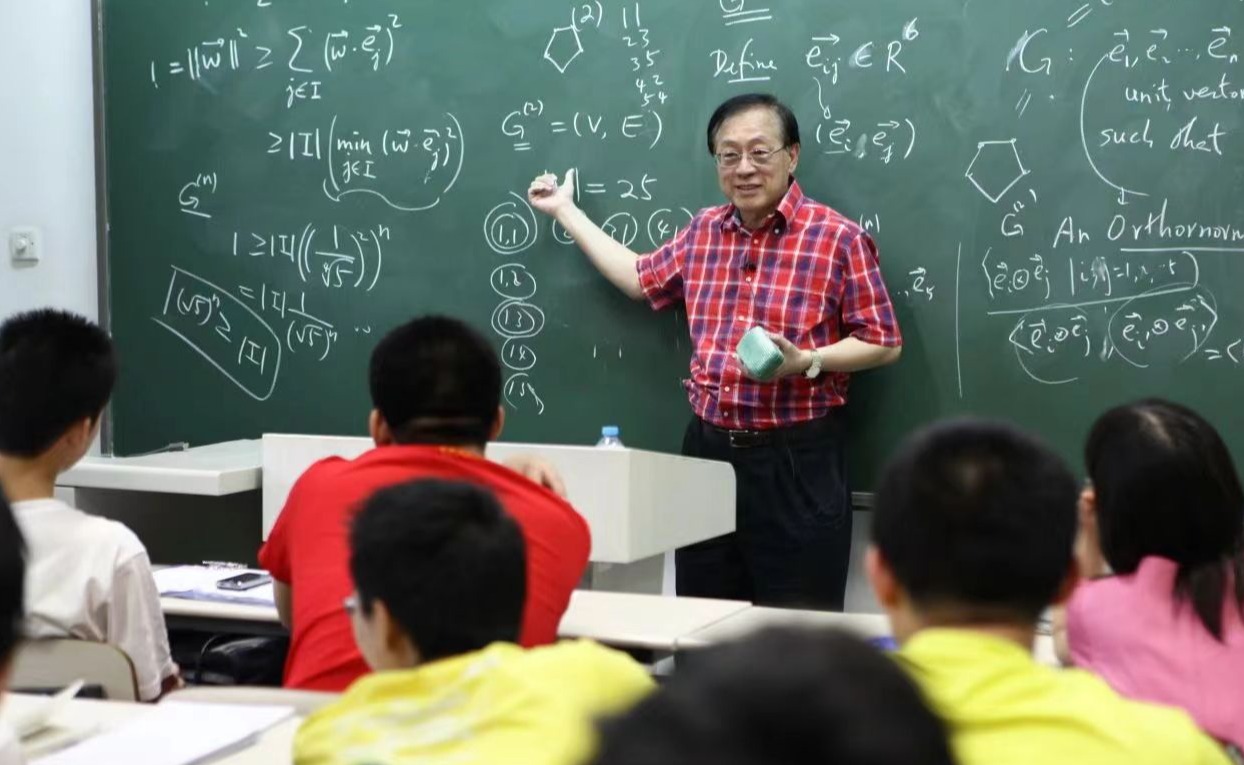 1 = ||w⃗||² ≥ Σ_{j∈I} (w⃗·e⃗_j)²
≥ |I| (min_{j∈I} (w⃗·e⃗_j)²)
G^(n)
1 ≥ |I| ((1/⁴√5)²)^n
= |I| 1/(√5)^n
(√5)^n ≥ |I|
(2)
11
23
35
42
54
G^(2) = (V, E)
| = 25
(1,1)
(1,2)
(1,3)
(1,4)
(1,5)
G
Define e⃗_ij ∈ R^6
(e⃗_i, e⃗_j)
(n)
, e⃗_5
G: e⃗_1, e⃗_2 ... e⃗_n
unit vecto
such that
G
An Orthonorm
{e⃗_i⊗e⃗_j | i,j=1, ..., 5}
<e⃗_i⊗e⃗_j, e⃗_i'⊗e⃗_j'>
= <